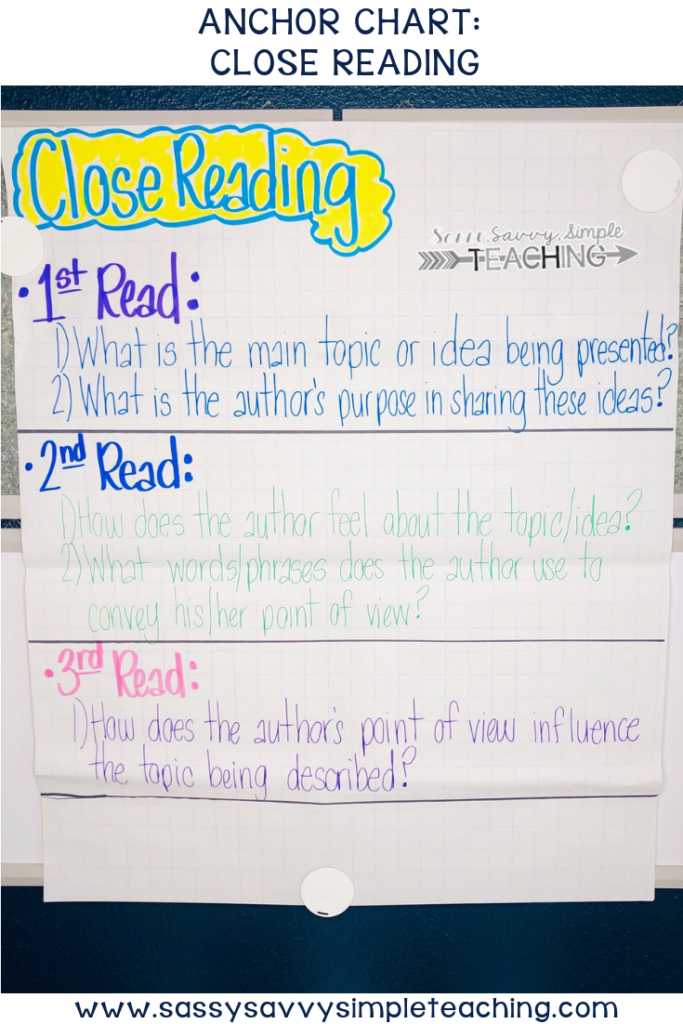 ANCHOR CHART:
CLOSE READING
Close Reading
Sassy, Savvy, Simple
TEACHING
• 1st Read:
1) What is the main topic or idea being presented?
2) What is the author's purpose in sharing these ideas?
• 2nd Read:
1) How does the author feel about the topic/idea?
2) What words/phrases does the author use to
convey his/her point of view?
• 3rd Read:
1) How does the author's point of view influence
the topic being described?
www.sassysavvysimpleteaching.com